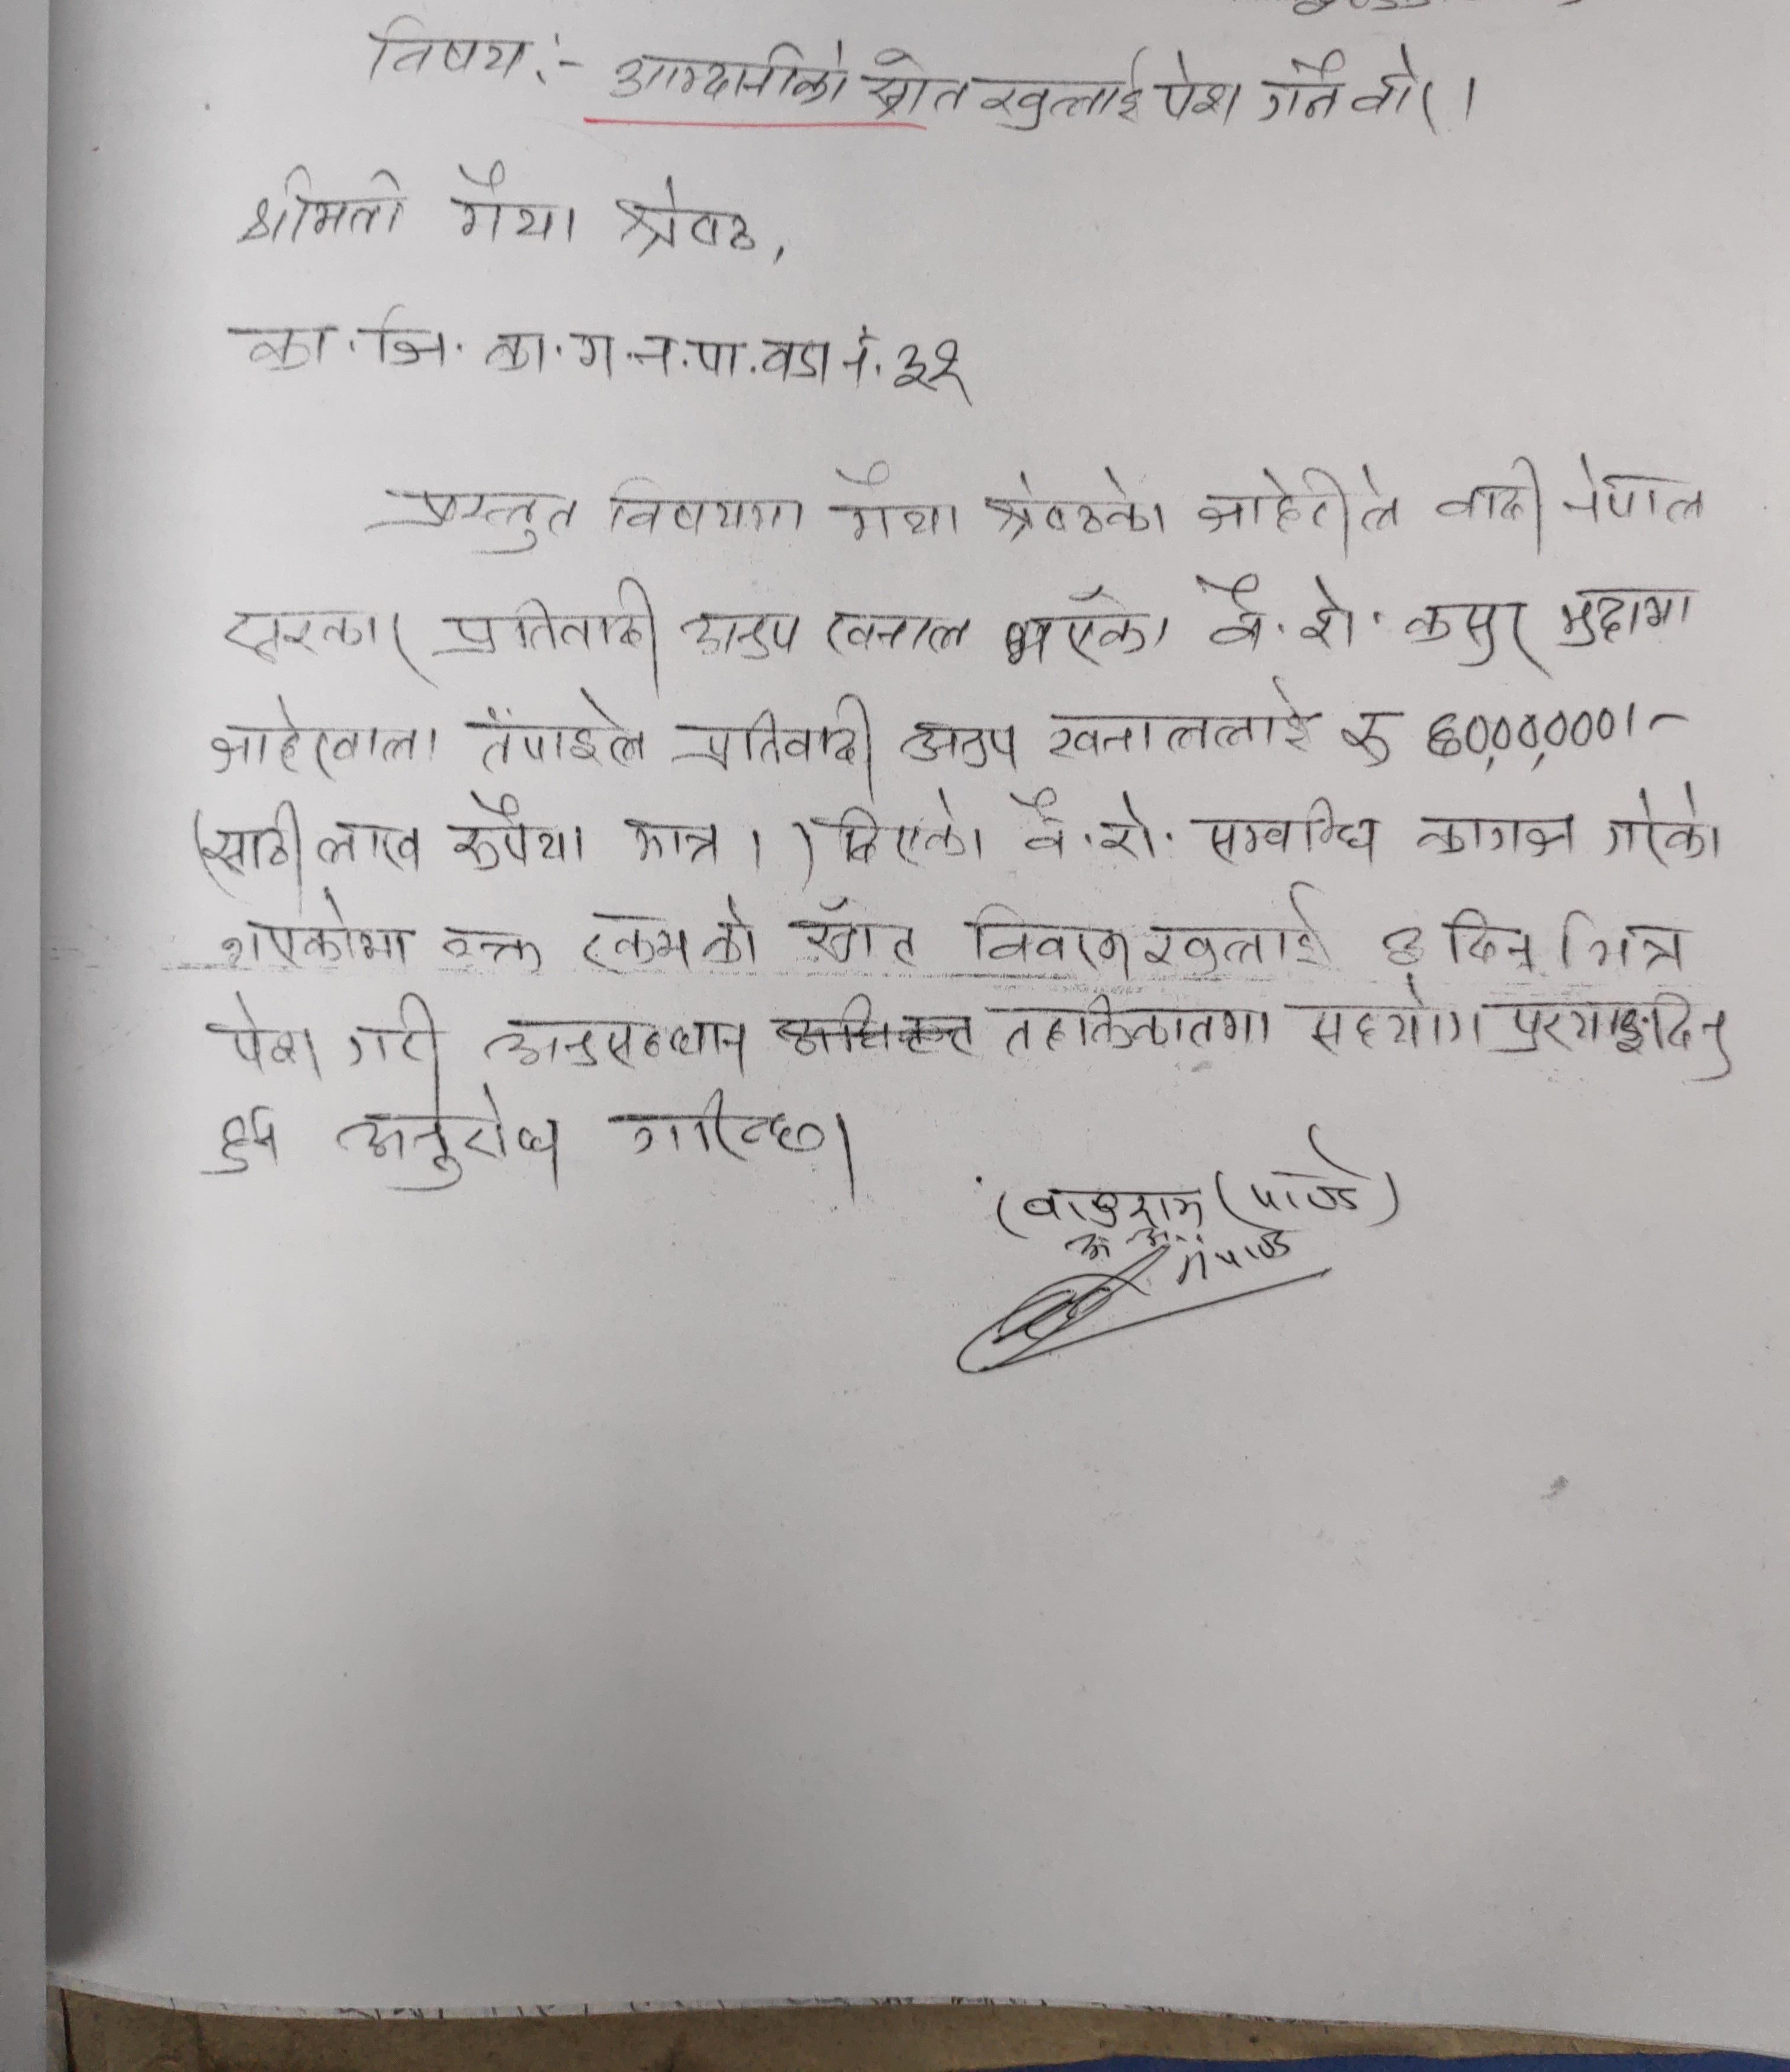 विषय :- आम्दानीको स्रोत खुलाई पेश गर्ने बारे।
श्रीमती मैया श्रेष्ठ,
का.जि. का.म.न.पा.वडा नं. ३१
प्रस्तुत विषयमा मैया श्रेष्ठको जाहेरीले वादी नेपाल
सरकार प्रतिवादी अनुप खनाल भएको वै.रो. कसुर मुद्दामा
जाहेरवाला तँपाइले प्रतिवादी अनुप खनाललाई रु ६०,००,०००।-
(साठी लाख रुपैया मात्र।) दिएको वै.रो. सम्वन्धि कागज गरेको
भएकोमा उक्त रकमको स्रोत विवरण खुलाई ३ दिन भित्र
पेश गरी अनुसन्धान तहकिकातमा सहयोग पुर्‍याइदिनु
हुन अनुरोध गरिन्छ।
(बाबुराम पाण्डे)